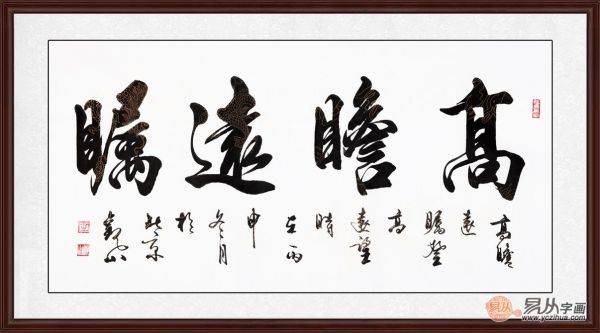 高瞻遠矚
高瞻
遠
矚登
高
遠望
時
丙
申
冬月
於
北京
山
易从字画
www.yczihua.com